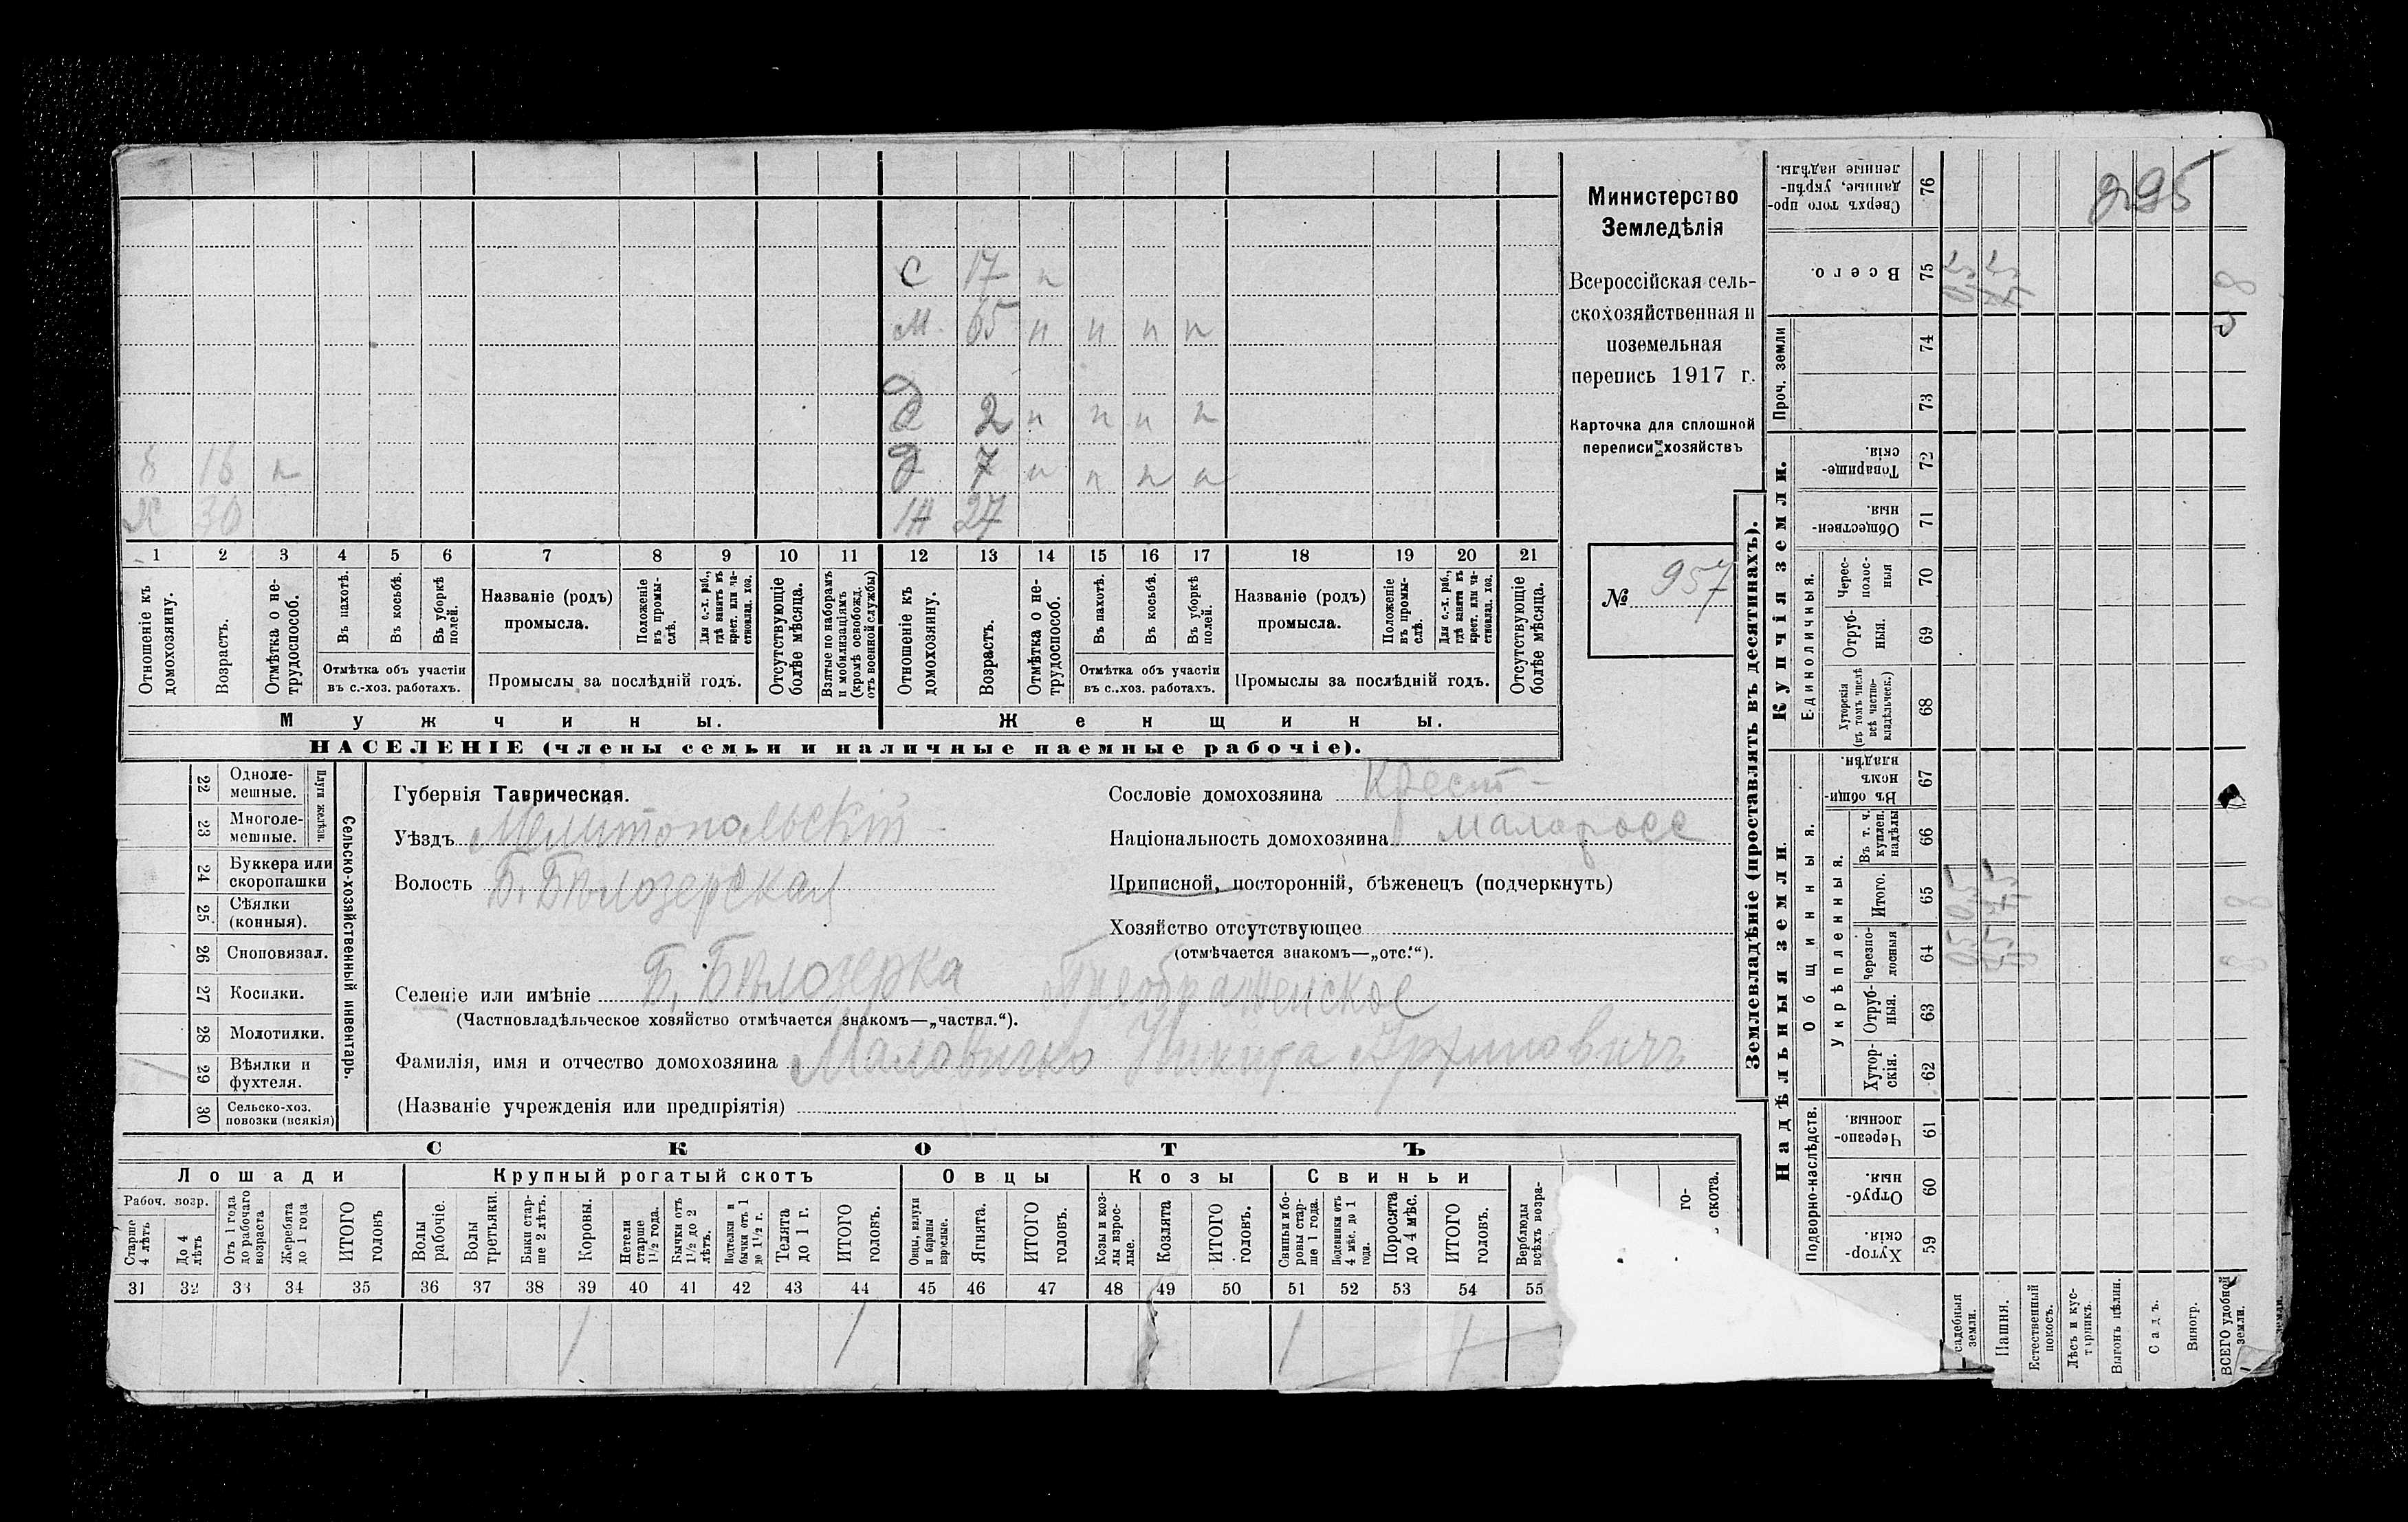 Министерство
Земледѣлія
Всероссійская сель-
скохозяйственная и
поземельная
перепись 1917 г.
Карточка для сплошной
переписи хозяйствъ
№ 957
295
С 17 н
М. 65 н н н н
2 н н н н
Д 7 н н н н
16 н
Х 30
Ж 27
1 2 3 4 5 6 7 8 9 10 11 12 13 14 15 16 17 18 19 20 21
Отношеніе къ домохозяину.
Возрастъ.
Отмѣтка о не-трудоспособ.
Въ пахотѣ.
Въ косьбѣ.
Въ уборкѣ полей.
Отмѣтка объ участіи
въ с.-хоз. работахъ.
Названіе (родъ)
промысла.
Положеніе въ промы-слѣ.
Для с.-х. раб., гдѣ занятъ въ крест. или ча-стновлад. хоз.
Промыслы за послѣдній годъ.
Отсутствующіе болѣе мѣсяца.
Взятые по наборамъ и мобилизаціямъ (кромѣ освобожд. отъ военной службы)
Отношеніе къ домохозяину.
Возрастъ.
Отмѣтка о не-трудоспособ.
Въ пахотѣ.
Въ косьбѣ.
Въ уборкѣ полей.
Отмѣтка объ участіи
въ с.-хоз. работахъ.
Названіе (родъ)
промысла.
Положеніе въ промы-слѣ.
Для с.-х. раб., гдѣ занята въ крест. или ча-стновлад. хоз.
Промыслы за послѣдній годъ.
Отсутствующіе болѣе мѣсяца.
Мужчины.
Женщины.
НАСЕЛЕНІЕ (члены семьи и наличные наемные рабочіе).
22 Одноле-мешные.
23 Многоле-мешные.
Плуги желѣзн.
24 Буккера или скоропашки
25 Сѣялки (конныя).
26 Сноповязал.
27 Косилки.
28 Молотилки.
29 Вѣялки и фухтеля.
30 Сельско-хоз. повозки (всякія)
Сельско-хозяйственный инвентарь.
Губернія Таврическая.
Уѣздъ Мелитопольскій
Волость Б. Бѣлозерская
Сословіе домохозяина Крест-
Національность домохозяина малоросс
Приписной, посторонній, бѣженецъ (подчеркнуть)
Хозяйство отсутствующее
(отмѣчается знакомъ—„отс.“).
Селеніе или имѣніе Б. Бѣлозерка Преображенское
(Частновладѣльческое хозяйство отмѣчается знакомъ—„частвл.“).
Фамилія, имя и отчество домохозяина Маловичко Никита Архиповичъ
(Названіе учрежденія или предпріятія)
СКОТЪ
Лошади
Крупный рогатый скотъ
Овцы
Козы
Свиньи
Рабоч. возр.
Старше 4 лѣтъ
До 4 лѣтъ
Отъ 1 года до рабочаго возраста
Жеребята до 1 года
ИТОГО головъ
Волы рабочіе.
Волы третьяки.
Быки стар-ше 2 лѣтъ.
Коровы.
Нетели старше 1½ года.
Бычки отъ 1½ до 2 лѣтъ.
Подтелки и бычки отъ 1 до 1½ г.
Телята до 1 г.
ИТОГО головъ.
Овцы, валухи и бараны взрослые.
Ягнята.
ИТОГО головъ.
Козы и коз-лы взрос-лые.
Козлята
ИТОГО головъ.
Свиньи и бо-ровы стар-ше 1 года.
Подсвинки отъ 4 мѣс. до 1 года.
Поросята до 4 мѣс.
ИТОГО головъ.
Верблюды всѣхъ возра-
го-
скота.
31 32 33 34 35 36 37 38 39 40 41 42 43 44 45 46 47 48 49 50 51 52 53 54 55
1 1 1 1
Землевладѣніе (проставлять въ десятинахъ).
Купчія земли.
Надѣльныя земли
Сверхъ того про-данные, укрѣп-ленные надѣлы. 76
Всего. 75
Проч. земли 74 73
Товарище-скія. 72
Обществен-ныя. 71
Единоличныя.
Черес-полос-ныя 70
Отруб-ныя. 69
Хуторскія (въ томъ числѣ всѣ частно-владѣльческ.) 68
Общинныя.
Въ общи-номъ владѣн. 67
Укрѣпленныя.
Въ т. ч. куплен. надѣлы 66
Итого. 65
Черезпо-лосныя 64
Отруб-ныя. 63
Хутор-скія. 62
Подворно-наслѣдств.
Черезпо-лосныя. 61
Отруб-ныя. 60
Хутор-скія. 59
садебныя земли.
Пашня.
Естественный покосъ.
Лѣсъ и кус-тарникъ.
Выгонъ цѣлин.
Садъ.
Виногр.
ВСЕГО удобной земли.